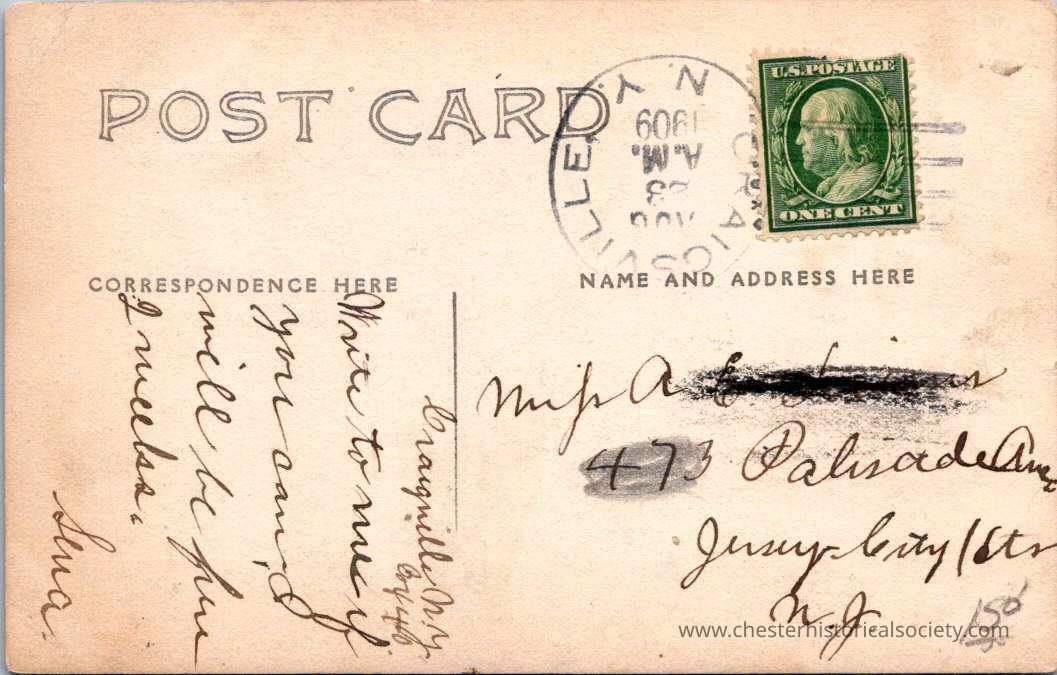 POST CARD
CRAIGSVILLE N.Y.
AUG
23
A.M.
1909
U.S. POSTAGE
ONE CENT
CORRESPONDENCE HERE
NAME AND ADDRESS HERE
Craigville N.Y.
Write to me if
you can, I
will be here
2 weeks.
Lena.
Miss A E
473 Palisade Ave
Jersey City Hts
N.J.
150
www.chesterhistoricalsociety.com